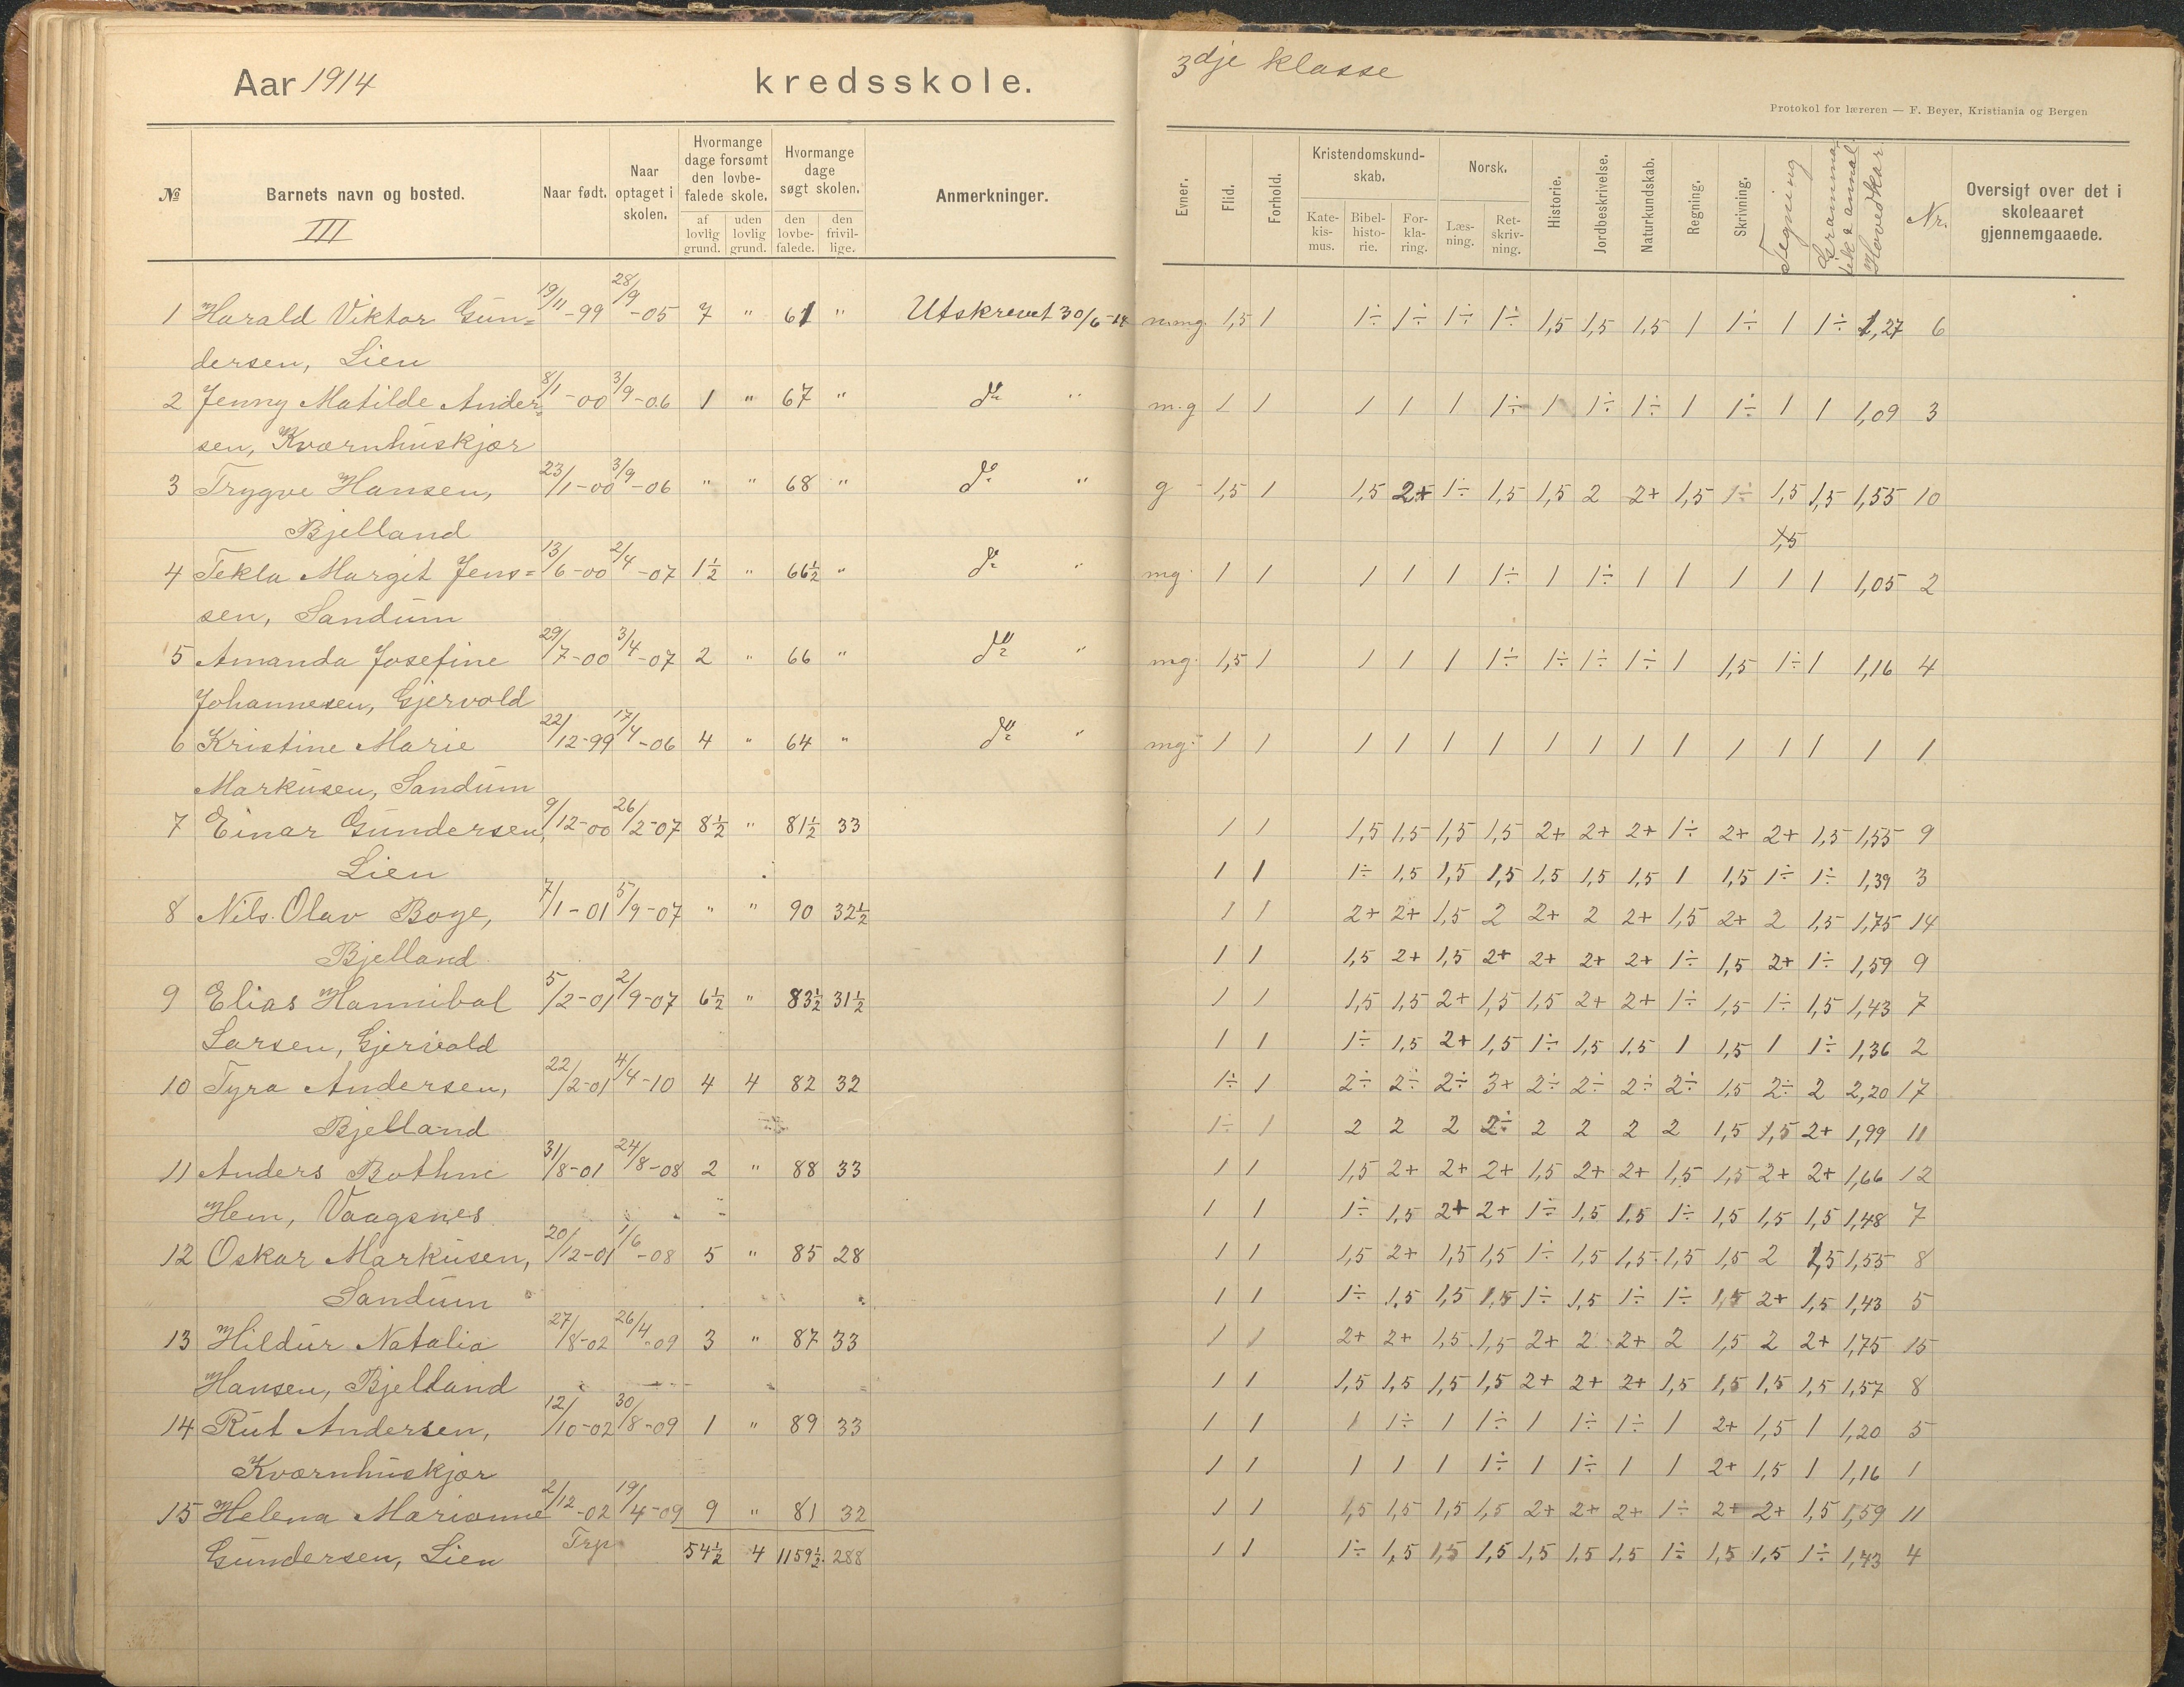 Aar 1914 kredsskole.
№ Barnets navn og bosted. Naar født. Naar optaget i skolen. Hvormange dage forsømt den lovbefalede skole. af lovlig grund. uden lovlig grund. Hvormange dage søgt skolen. den lovbefalede. den frivillige. Anmerkninger.
III
1 Harald Viktor Gun= 19/11-99 28/9-05 7 " 61 " Utskrevet 30/6-14
dersen, Lien
2 Jenny Matilde Ander= 8/1-00 3/9-06 1 " 67 " do "
sen, Kværnhuskjær
3 Trygve Hansen, 23/1-00 3/9-06 " " 68 " do "
Bjelland
4 Tekla Margit Jens= 13/6-00 2/4-07 1½ " 66½ " do "
sen, Sandum
5 Amanda Josefine 29/7-00 3/4-07 2 " 66 " do "
Johannesen, Gjervold
6 Kristine Marie 22/12-99 17/4-06 4 " 64 " do "
Markusen, Sandum
7 Einar Gundersen, 9/12-00 26/2-07 8½ " 81½ 33
Lien
8 Nils Olav Boye, 7/1-01 5/9-07 " " 90 32½
Bjelland
9 Elias Hannibal 5/2-01 2/9-07 6½ " 83½ 31½
Larsen, Gjervold
10 Tyra Andersen, 22/2-01 4/4-10 4 4 82 32
Bjelland
11 Anders Bothne 31/8-01 24/8-08 2 " 88 33
Hem, Vaagsnes
12 Oskar Markusen, 20/12-01 1/6-08 5 " 85 28
Sandum
13 Hildur Natalia 27/8-02 26/4-09 3 " 87 33
Hansen, Bjelland
14 Rut Andersen, 12/10-02 30/8-09 1 " 89 33
Kværnhuskjær
15 Helena Marianne 2/12-02 19/4-09 9 " 81 32
Gundersen, Lien Trp 54½ 4 1159½ 288
3dje klasse
Protokol for læreren — F. Beyer, Kristiania og Bergen
Evner. Flid. Forhold. Kristendomskundskab. Katekismus. Bibelhistorie. Forklaring. Norsk. Læsning. Retskrivning. Historie. Jordbeskrivelse. Naturkundskab. Regning. Skrivning. Tegning Hovedkar Nr. Oversigt over det i skoleaaret gjennemgaaede.
mmg 1,5 1 1÷ 1÷ 1÷ 1÷ 1,5 1,5 1,5 1 1÷ 1 1÷ 1,27 6
m.g 1 1 1 1 1 1÷ 1 1÷ 1÷ 1 1÷ 1 1 1,09 3
g 1,5 1 1,5 2+ 1÷ 1,5 1,5 2 2+ 1,5 1÷ 1,5 1,5 1,55 10
1,5
mg. 1 1 1 1 1 1÷ 1 1÷ 1 1 1 1 1 1,05 2
mg. 1,5 1 1 1 1 1÷ 1÷ 1÷ 1÷ 1 1,5 1÷ 1 1,16 4
mg. 1 1 1 1 1 1 1 1 1 1 1 1 1 1 1
1 1 1,5 1,5 1,5 1,5 2+ 2+ 2+ 1÷ 2+ 2+ 1,5 1,55 9
1 1 1÷ 1,5 1,5 1,5 1,5 1,5 1,5 1 1,5 1÷ 1÷ 1,39 3
1 1 2+ 2+ 1,5 2 2+ 2 2+ 1,5 2+ 2 1,5 1,75 14
1 1 1,5 2+ 1,5 2+ 2+ 2+ 2+ 1÷ 1,5 2+ 1÷ 1,59 9
1 1 1,5 1,5 2+ 1,5 1,5 2+ 2+ 1÷ 1,5 1÷ 1,5 1,43 7
1 1 1÷ 1,5 2+ 1,5 1÷ 1,5 1,5 1 1,5 1 1÷ 1,36 2
1÷ 1 2÷ 2÷ 2÷ 3+ 2÷ 2÷ 2÷ 2÷ 1,5 2÷ 2 2,20 17
1÷ 1 2 2 2 2÷ 2 2 2 2 1,5 1,5 2+ 1,99 11
1 1 1,5 2+ 2+ 2+ 1,5 2+ 2+ 1,5 1,5 2+ 2+ 1,66 12
1 1 1÷ 1,5 2+ 2+ 1÷ 1,5 1,5 1÷ 1,5 1,5 1,5 1,48 7
1 1 1,5 2+ 1,5 1,5 1÷ 1,5 1,5 1,5 1,5 2 1,5 1,55 8
1 1 1÷ 1,5 1,5 1,5 1÷ 1,5 1÷ 1÷ 1,5 2+ 1,5 1,43 5
1 1 2+ 2+ 1,5 1,5 2+ 2 2+ 2 1,5 2 2+ 1,75 15
1 1 1,5 1,5 1,5 1,5 2+ 2+ 2+ 1,5 1,5 1,5 1,5 1,57 8
1 1 1 1÷ 1 1÷ 1 1÷ 1÷ 1 2+ 1,5 1 1,20 5
1 1 1 1 1 1÷ 1 1÷ 1 1 2+ 1,5 1 1,16 1
1 1 1,5 1,5 1,5 1,5 2+ 2+ 2+ 1÷ 2+ 2+ 1,5 1,59 11
1 1 1÷ 1,5 1,5 1,5 1,5 1,5 1,5 1÷ 1,5 1,5 1÷ 1,43 4